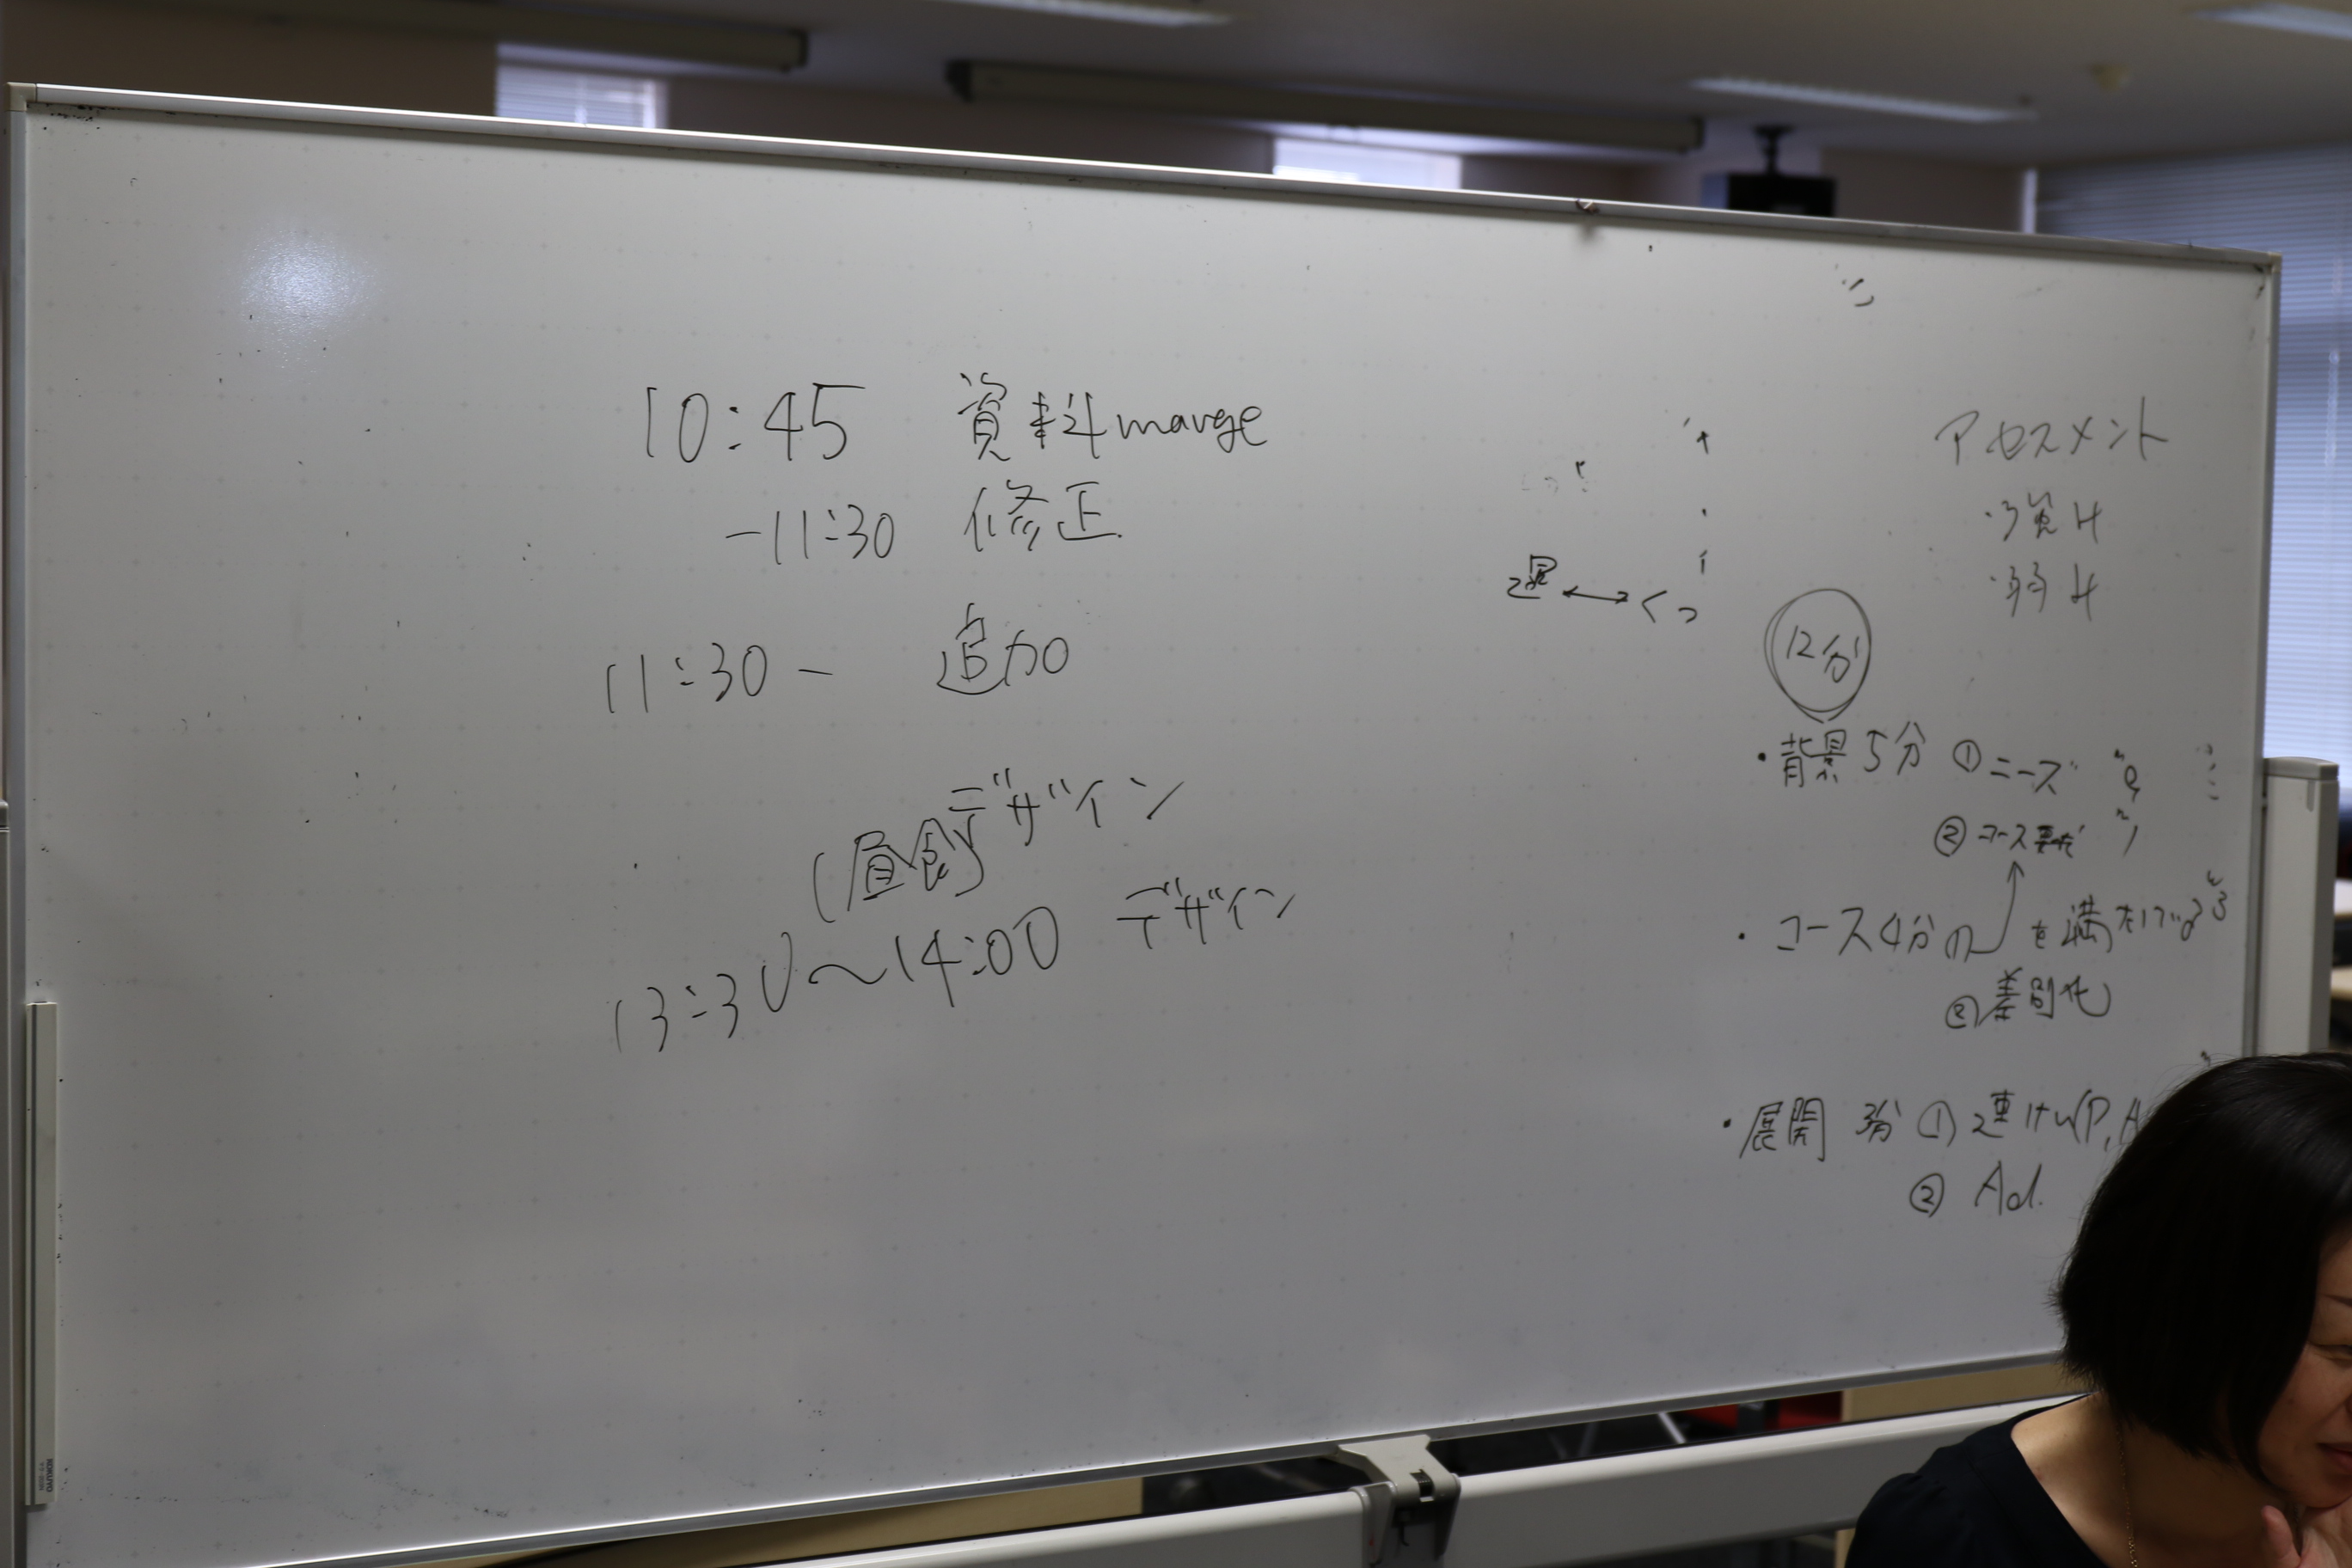 10:45 資料marge
-11:30 修正
11:30 - 追加
デザイン
(昼食)
13:30〜14:00 デザイン
アセスメント
・強み
・弱み
12分
・背景 5分 ① ニーズ
② コース要求
・コース 4分
を満たす
③ 差別化
・展開 3分 ①
② Ad.
KOKUYO